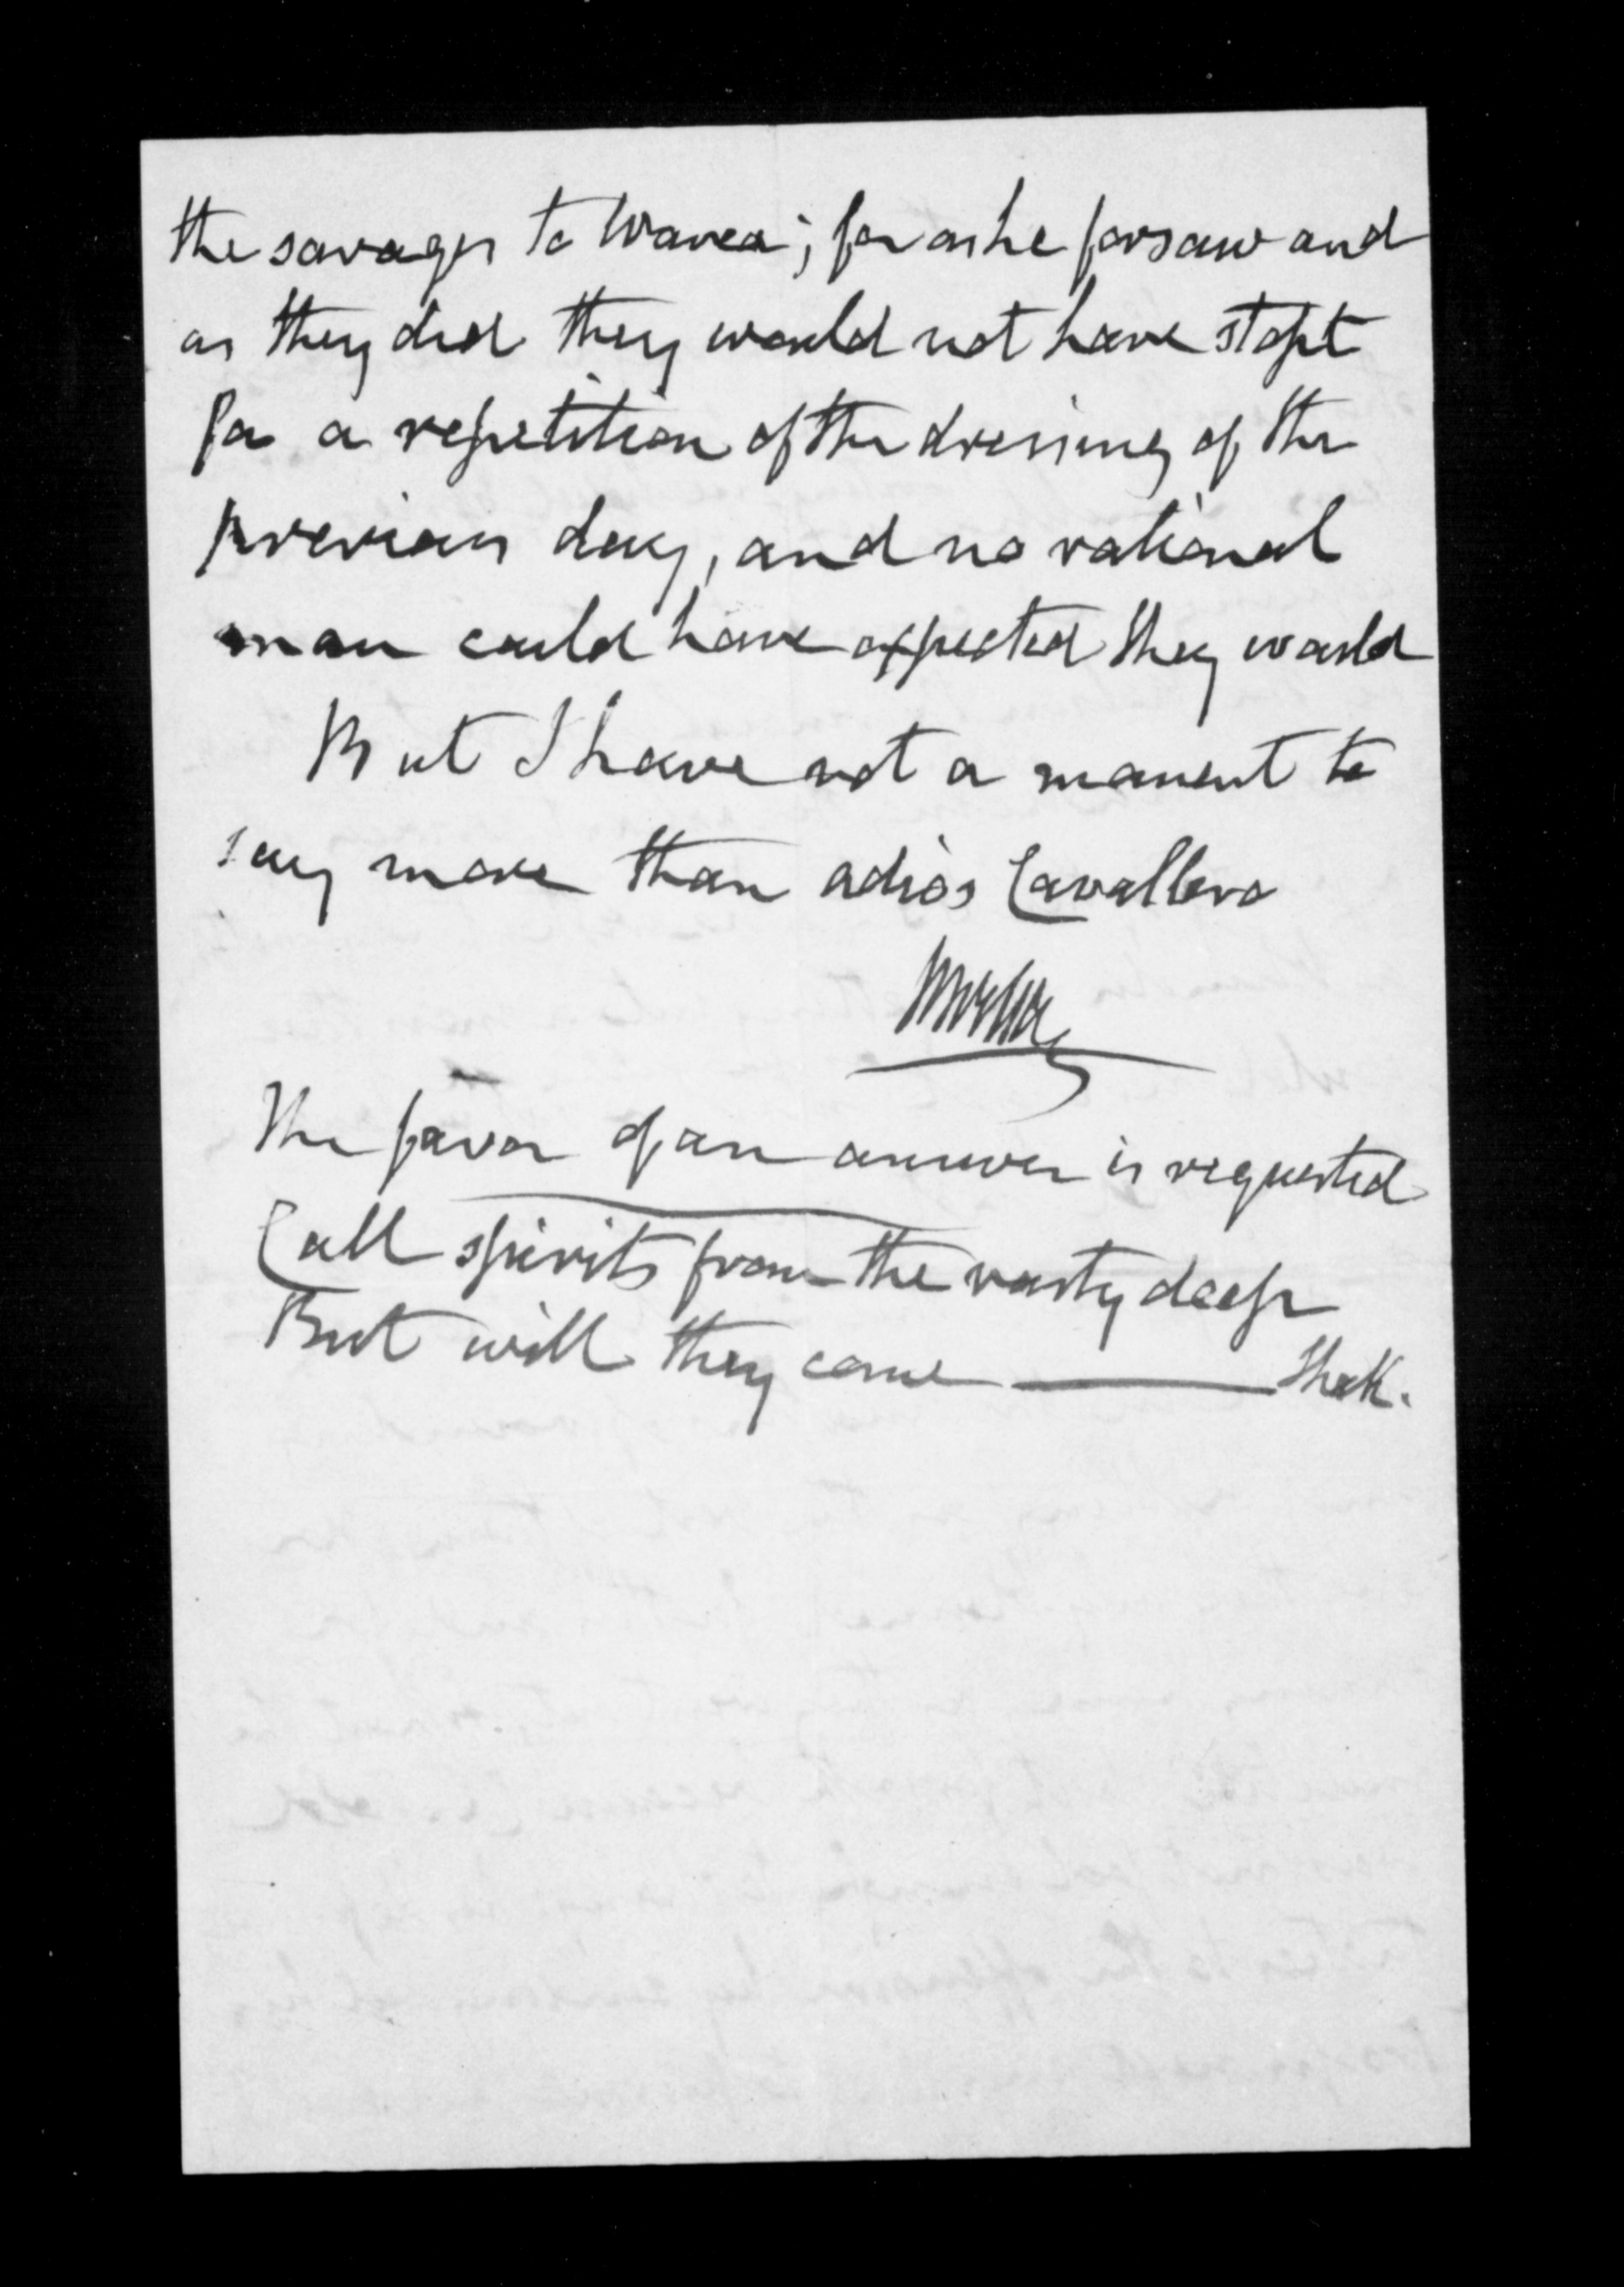 the savages to Wavea; for as he forsaw and
as they did they would not have stopt
for a repetition of the dressing of the
previous day, and no rational
man could have expected they would
But I have not a moment to
say more than adios Cavallero
The favor of an answer is requested
Call spirits from the vasty deep
But will they come ——— Shak.